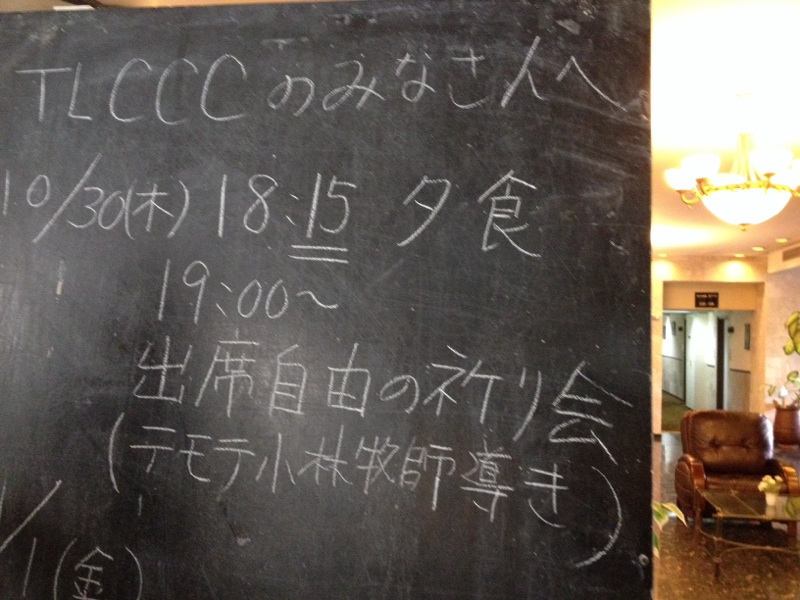 TLCCCのみなさんへ
10/30(木) 18:15 夕食
19:00〜
出席自由の祈り会
(テモテ小林牧師導き)
/1(金)